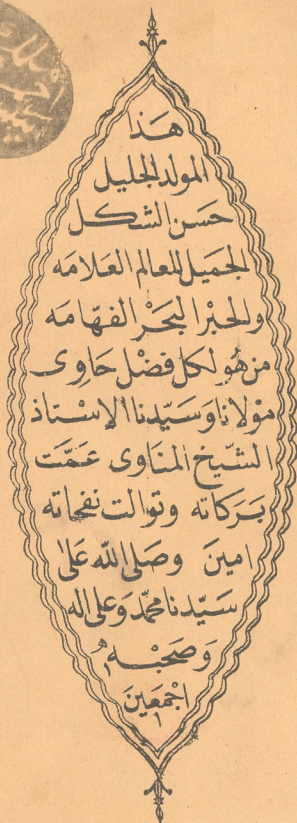 هَذا
المولد الجليل
حَسن الشكل
الجميل للعالم العَلامَه
والحبْر البحَرْ الفهّامَه
من هُو لكل فضْل حَاوِى
موْلانا وَسَيّدنا الاِسْتاذ
الشّيخ المنَاوى عَمَّت
بَرَكاته وتوالت نفحاته
امينَ وصَلى الله عَلى
سَيّدنا محمّد وَعلى اله
وَصَحْبْه
اجْمَعيَن